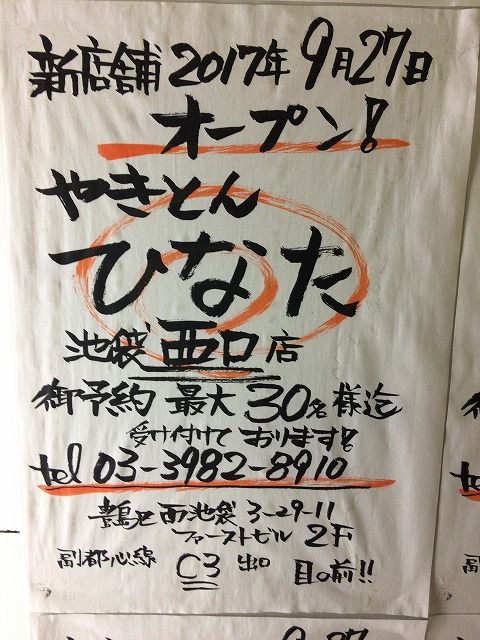 新店舗 2017年 9月27日
オープン!
やきとん
ひなた
池袋 西口 店
御予約 最大 30名様迄
受け付けております!
tel 03-3982-8910
豊島区西池袋 3-29-11
ファーストビル 2F
副都心線 C3 出口 目の前!!